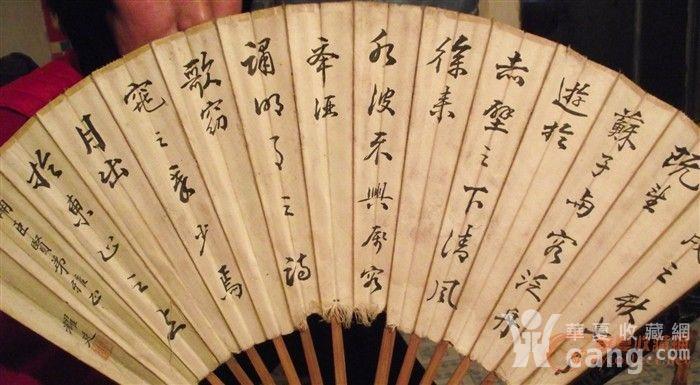 戌之秋七月
既望
蘇子與客泛舟
遊於
赤壁之下清風
徐來
水波不興屬客
舉酒
誦明月之詩
歌窈
窕之章少焉
月出
於東山之上
賢弟雅正
華夏收藏網
cang.com